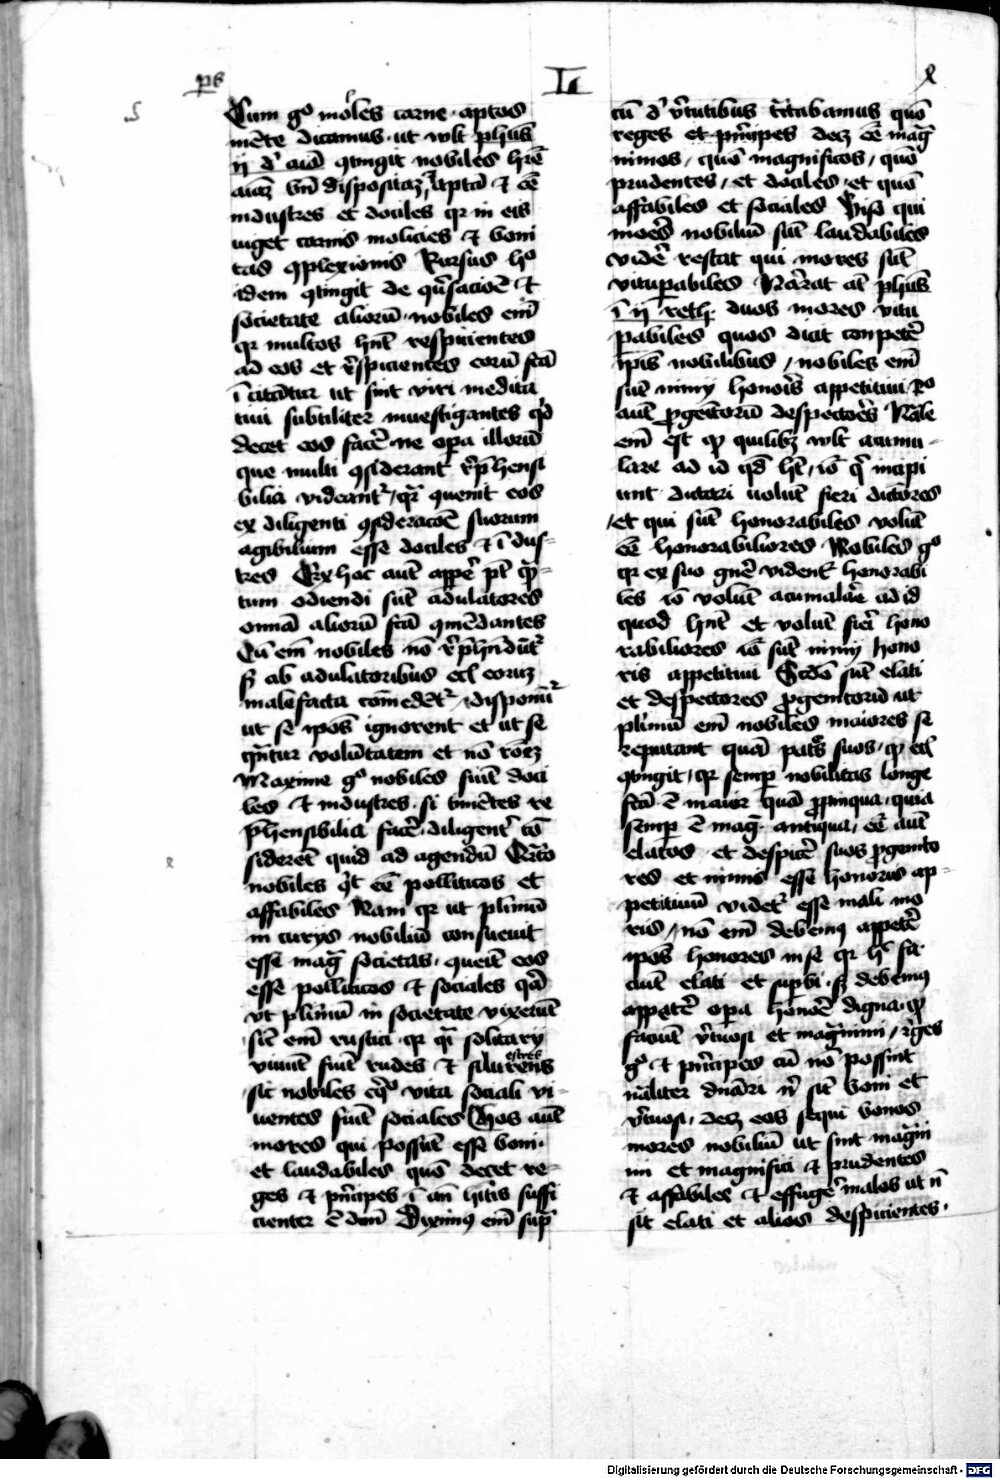 ps
L
x
Cum gͦ moles carne aptos
mēte dicamus ut vult phūs
ij dͤ aīa ꝯtingit nobiles hr̄e
aīaꝫ bn̄ dispositaꝫ aptā et eē
industres et dociles qr in eis
viget carnis molicies et boni
tas ꝯplexionis Rursus hͦ
idem ꝯtingit de ꝯūsacioē et
societate aliorū nobiles eīm
qr multos hn̄t respicientes
ad eos et ꝑspicientes eorū fc̄a
īcitātur ut sint viri medita
tiui subtiliter inuestigantes qd
decet eos facē ne oꝑa illorū
que multi ꝯsiderant r̄p̄hensi
bilia videant᷑ qr̄ ꝯuenit eos
ex diligenti ꝯsideracōe suorum
agibilium esse dociles et īdus-
tres Ex hoc aūt apꝑe pt̄ qͣ-
tum odiendi sūt adulatores
omnā aliorū fc̄a ꝯmēdantes
Cū eīm nobiles nō r̄p̄hēdūt᷑
sꝫ ab adulatoribus ec̄ eoruꝫ
malefacta cōmēdēt᷑ disponūt᷑
ut se ip̄os ignorent et ut se
qn̄tur volūtatem et nō rōeꝫ
Maxime gͦ nobiles fiūt doci
les et industres si timētes re
p̄hensibilia facē diligent᷑ cō
siderēt quid ad agendū Qͣrto
nobiles ꝯt̄ eē polliticos et
affabiles Nam qr ut plimū
in curijs nobiliū consueuit
esse maḡ societas queīt eos
esse polliticos et sociales qͣ
ut plimū in societate vixerūt
sic̄ eīm rustici qr qͣ solitarij
viuūt fiūt rudes et siluestres
sic nobiles eꝯͦ vita sociali vi-
uentes fiūt sociales Hos aūt
mores qui possūt esse boni
et laudabiles quō decet re-
ges et pͥncipes ī aīn hītis suffi
cienter ē dcm̄ Diximus eīm supͣ
cū dͤ v̄tutibus tͣctabamus quō
reges et pͥncipes decꝫ eē maḡ
nimos / quō magnificos / quō
prudentes / et dociles et quō
affabiles et sociales Viso qui
moēs nobiliū sūt laudabiles
vidē restat qui mores sūt
vituꝑabiles Nar̄rat aūt phūs
ī ij reth. duos mores vitu
ꝑabiles quos dicit competē
ip̄is nobilibus / nobiles eīm
sūt nimij honoīs appetitiui Et
aūt ꝓgeītorū despectoēs Nāle
eīm est qͦ quilibꝫ vult acumu-
lare ad id qd̄ hꝫ / iō qͥ incipi
unt dictari uolūt fieri dictores
/ et qui sūt honorabiles volūt
eē honorabiliores Nobiles gͦ
qr ex suo gn̄e vident᷑ honorabi
les iō volūt acumulāe ad id
quod hn̄t et volūt fieī hono
rabiliores iō sūt nimij hono
ris appetitiui Scdō sūt elati
et despectores ꝓgenitorū ut
plimū eīm nobiles maiores se
reputant quā patꝰs suos / qͦ ec̄
ꝯtingit / qr semꝑ nobilitas longe
fc̄a ē maior quā ꝓpinqua / quia
semꝑ ē maḡ antiqua / eē aūt
elatos et despicē suos ꝓgenito
res et nimis esse honoris ap-
petitiuū videt᷑ esse mali mo
ris / nō eīm debemꝰ appetē
ip̄os honores in se qr hͨ fa
ciūt elati et sup̄bi sꝫ debemꝰ
appetē oꝑa honoē digna qͦ
faciūt v̄tuosi et magͣnimi / r̄ges
gͦ et pͥncipes cū nō possint
nāliter dnāri nͥ sīt boni et
v̄tuosi / decꝫ eos sequi bonos
mores nobiliū ut sint magͣni
mi et magnifici et prudentes
et affabiles et effugē malos ut n̄
sīt elati et alios despicientes.
Digitalisierung gefördert durch die Deutsche Forschungsgemeinschaft - DFG